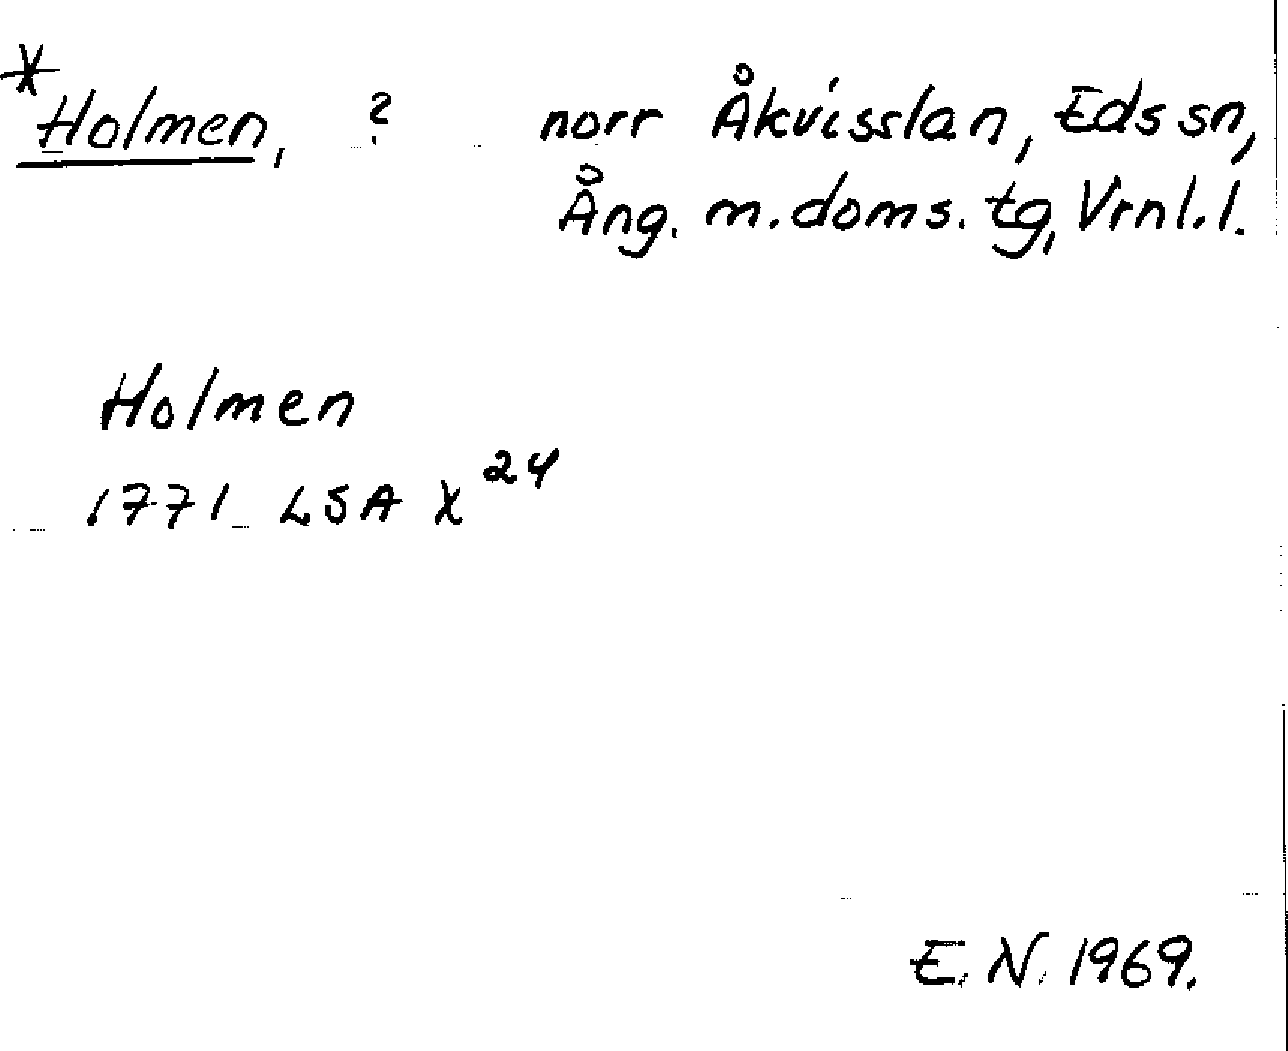 *Holmen, ? norr Åkvisslan, Eds sn,
Ång. m. doms. tg, Vrnl. l.
Holmen
1771 LSA X²⁴
E. N. 1969.